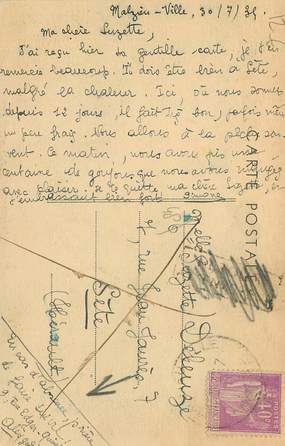 Malzieu-Ville, 30/7/35.
Ma chère Suzette,
J'ai reçu hier ta gentille carte, je t'en
remercie beaucoup. Tu dois être bien à Sète,
malgré la chaleur. Ici où nous sommes
depuis 12 jours, il fait très bon, parfois même
un peu frais. Nous allons à la pêche sou-
vent. Ce matin, nous avons pris une
centaine de goujons que nous avons mangés
avec plaisir. Je te quitte ma chère Suzette, en
t'embrassant bien fort. Simone
CARTE POSTALE
Melle
Suzette Déleuze
7, rue Jean Jaurès, 7
Sète
(Hérault)
En cas d'absence prière
de faire suivre
40c
POSTES